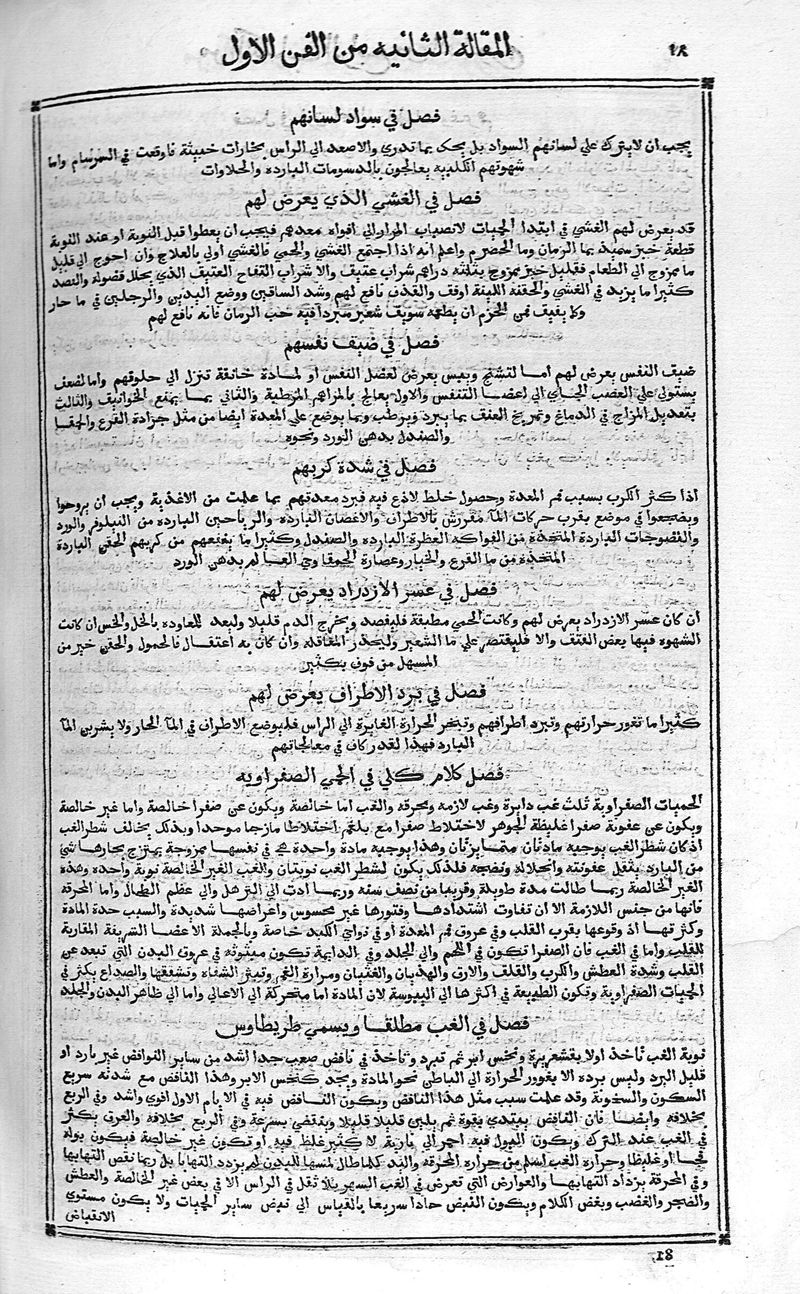 ١٨
المقالة الثانيه من الفن الاول
فصل في سواد لسانهم
يجب ان لا يترك علي لسانهم السواد بل يحك بما تدري والا صعد الي الراس بخارات خبيثة فاوقعت في السرسام واما
شهوتهم الكلبيه يعالجون بالدسومات البارده والحلاوات
فصل في الغشي الذي يعرض لهم
قد يعرض لهم الغشي في ابتدا الحميات لانصباب المرار الي افواه معدهم فيجب ان يعطوا قبل النوبة او عند النوبة
قطعة خبز سميد بما الرمان وما الحضرم واعلم انه اذا اجتمع الغشي والحمي فالغشي اولي بالعلاج وان احوج الي قليل
ما ممزوج الي الطعام فقليل خبز ممزوج بثلثة دراهم شراب عتيق والا شراب التفاح العتيق الذي يحلل فضوله والفصد
كثيرا ما يزيد في الغشي والحقنه اللينة اوفق والقذف نافع لهم وشد الساقين ووضع اليدين والرجلين في ما حار
وكما يفيق فمن الحزم ان يطعم سويق شعير مبردا فيه حب الرمان فانه نافع لهم
فصل في ضيق نفسهم
ضيق النفس يعرض لهم اما لتشنج ويبس يعرض لعضل النفس او لمادة خانقة تنزل الي حلوقهم واما لضعف
يستولي علي العصب الجاي الي اعضا التنفس والاول يعالج بالمراهم المرطبة والثاني بما يمنع الخوانيق والثالث
بتعديل المزاج في الدماغ وتمريخ العنق بما يبرد ويرطب وبما يوضع علي المعدة ايضا من مثل جرادة القرع والحمقا
والصندل بدهن الورد ونحوه
فصل في شدة كربهم
اذا كثر الكرب بسبب فم المعدة وحصول خلط لاذع فيه فبرد معدتهم بما علمت من الاغذية ويجب ان يروحوا
ويضجعوا في موضع بقرب حركات المآ مفروش بالاطراف والاغصان البارده والرياحين البارده من النيلوفر والورد
والنضوجات الباردة المتخذة من الفواكه العطرة البارده والصندل وكثيرا ما ينفعهم من كربهم الحقن الباردة
المتخذة من ما القرع والخيار وعصارة الحمقا وحي العالم بدهن الورد
فصل في عسر الازدراد يعرض لهم
ان كان عسر الازدراد يعرض لهم وكانت الحمي مطبقة فليفصد ويخرج الدم قليلا وليعد للعاوده بالخل والخس ان كانت
الشهوه فيها بعض الفتق والا فليقتصر علي ما الشعير وليحذر المغافله وان كان به اعتقال فالحمول والحقن خير من
المسهل من فوق بكثير
فصل في برد الاطراف يعرض لهم
كثيرا ما تغور حرارتهم وتبرد اطرافهم وتبخر الحرارة الغايرة الي الراس فليوضع الاطراف في المآ الحار ولا يشربن المآ
البارد فهذا القدر كاف في معالجاتهم
فصل كلام كلي في الحمي الصفراويه
الحميات الصفراوية ثلث غب دايرة وغب لازمه ومحرقة والغب اما خالصة ويكون عن صفرا خالصة واما غير خالصة
ويكون عن عفونة صفرا غليظة الجوهر لاختلاط صفرا مع بلغم اختلاطا مازجا موحدا وبذلك يخالف شطر الغب
اذ كان شطر الغب يوجبه مادتان متمايزتان وهذا يوجبه مادة واحدة هي في نفسها ممزوجة يمتزج بحارها شي
من البارد يثقل عفونته وانحلاله ونضجه فلذلك يكون لشطر الغب نوبتان والغب الغير الخالصة نوبة واحده وهذه
الغير الخالصة ربما طالت مدة طويلة وقريبا من نصف سنه وربما ادت الي الترهل والي عظم الطحال واما المحرقة
فانها من جنس اللازمة الا ان تفاوت اشتدادها وفتورها غير محسوس واعراضها شديدة والسبب حدة المادة
وكثرتها اذ وقوعها بقرب القلب وفي عروق فم المعدة او في نواحي الكبد خاصة وبالجملة الاعضا الشريفة المقاربة
للقلب واما في الغب فان الصفرا تكون في اللحم والي الجلد وفي الدايمة تكون مبثوثه في عروق البدن التي تبعد عن
القلب وشدة العطش والكرب والقلق والارق والهذيان والغثيان ومرارة الفم وتبثر الشفاه وتشققها والصداع يكثر في
الحميات الصفراوية وتكون الطبيعة في اكثرها الي اليبوسة لان المادة اما متحركة الي الاعالي واما الي ظاهر البدن والجلد
فصل في الغب مطلقا ويسمي طريطاوس
نوبة الغب تاخذ اولا بقشعريرة ونخس ابر ثم تبرد وتاخذ في نافض صعب جدا اشد من ساير النوافض غير بارد او
قليل البرد وليس برده الا بغوور الحرارة الي الباطن نحو المادة ويجد كنخس الابر وهذا النافض مع شدته سريع
السكون والسخونة وقد علمت سبب مثل هذا النافض ويكون النافض فيه في الايام الاول اقوي واشد وفي الربع
بخلافه وايضا فان النافض يبتدي بقوة ثم يلين قليلا قليلا وينقضي بسرعة وفي الربع بخلافه والعرق يكثر
في الغب عند الترك ويكون البول فيه احمر الي نارية لا كثير غلظ فيه او تكون غير خالصة فيكون بوله
فجا او غليظا وحرارة الغب اسلم من حرارة المحرقة واليد كلما طال لمسها للبدن لم يزدد التهابا بل ربما نقص التهابها
وفي المحرقة يزداد التهابها والعوارض التي تعرض في الغب السهر بلا ثقل في الراس الا في بعض غير الخالصة والعطش
والضجر والغضب وبغض الكلام ويكون النبض حادا سريعا بالقياس الي نبض ساير الحميات ولا يكون مستوي
الانقباض
81